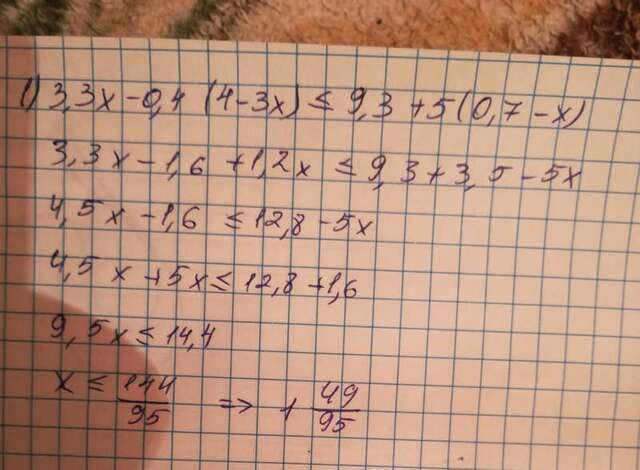 1) 3,3x - 0,4 (4 - 3x) ≤ 9,3 + 5(0,7 - x)
3,3x - 1,6 + 1,2x ≤ 9,3 + 3,5 - 5x
4,5x - 1,6 ≤ 12,8 - 5x
4,5x + 5x ≤ 12,8 + 1,6
9,5x ≤ 14,4
x ≤ 144/95 => 1 49/95